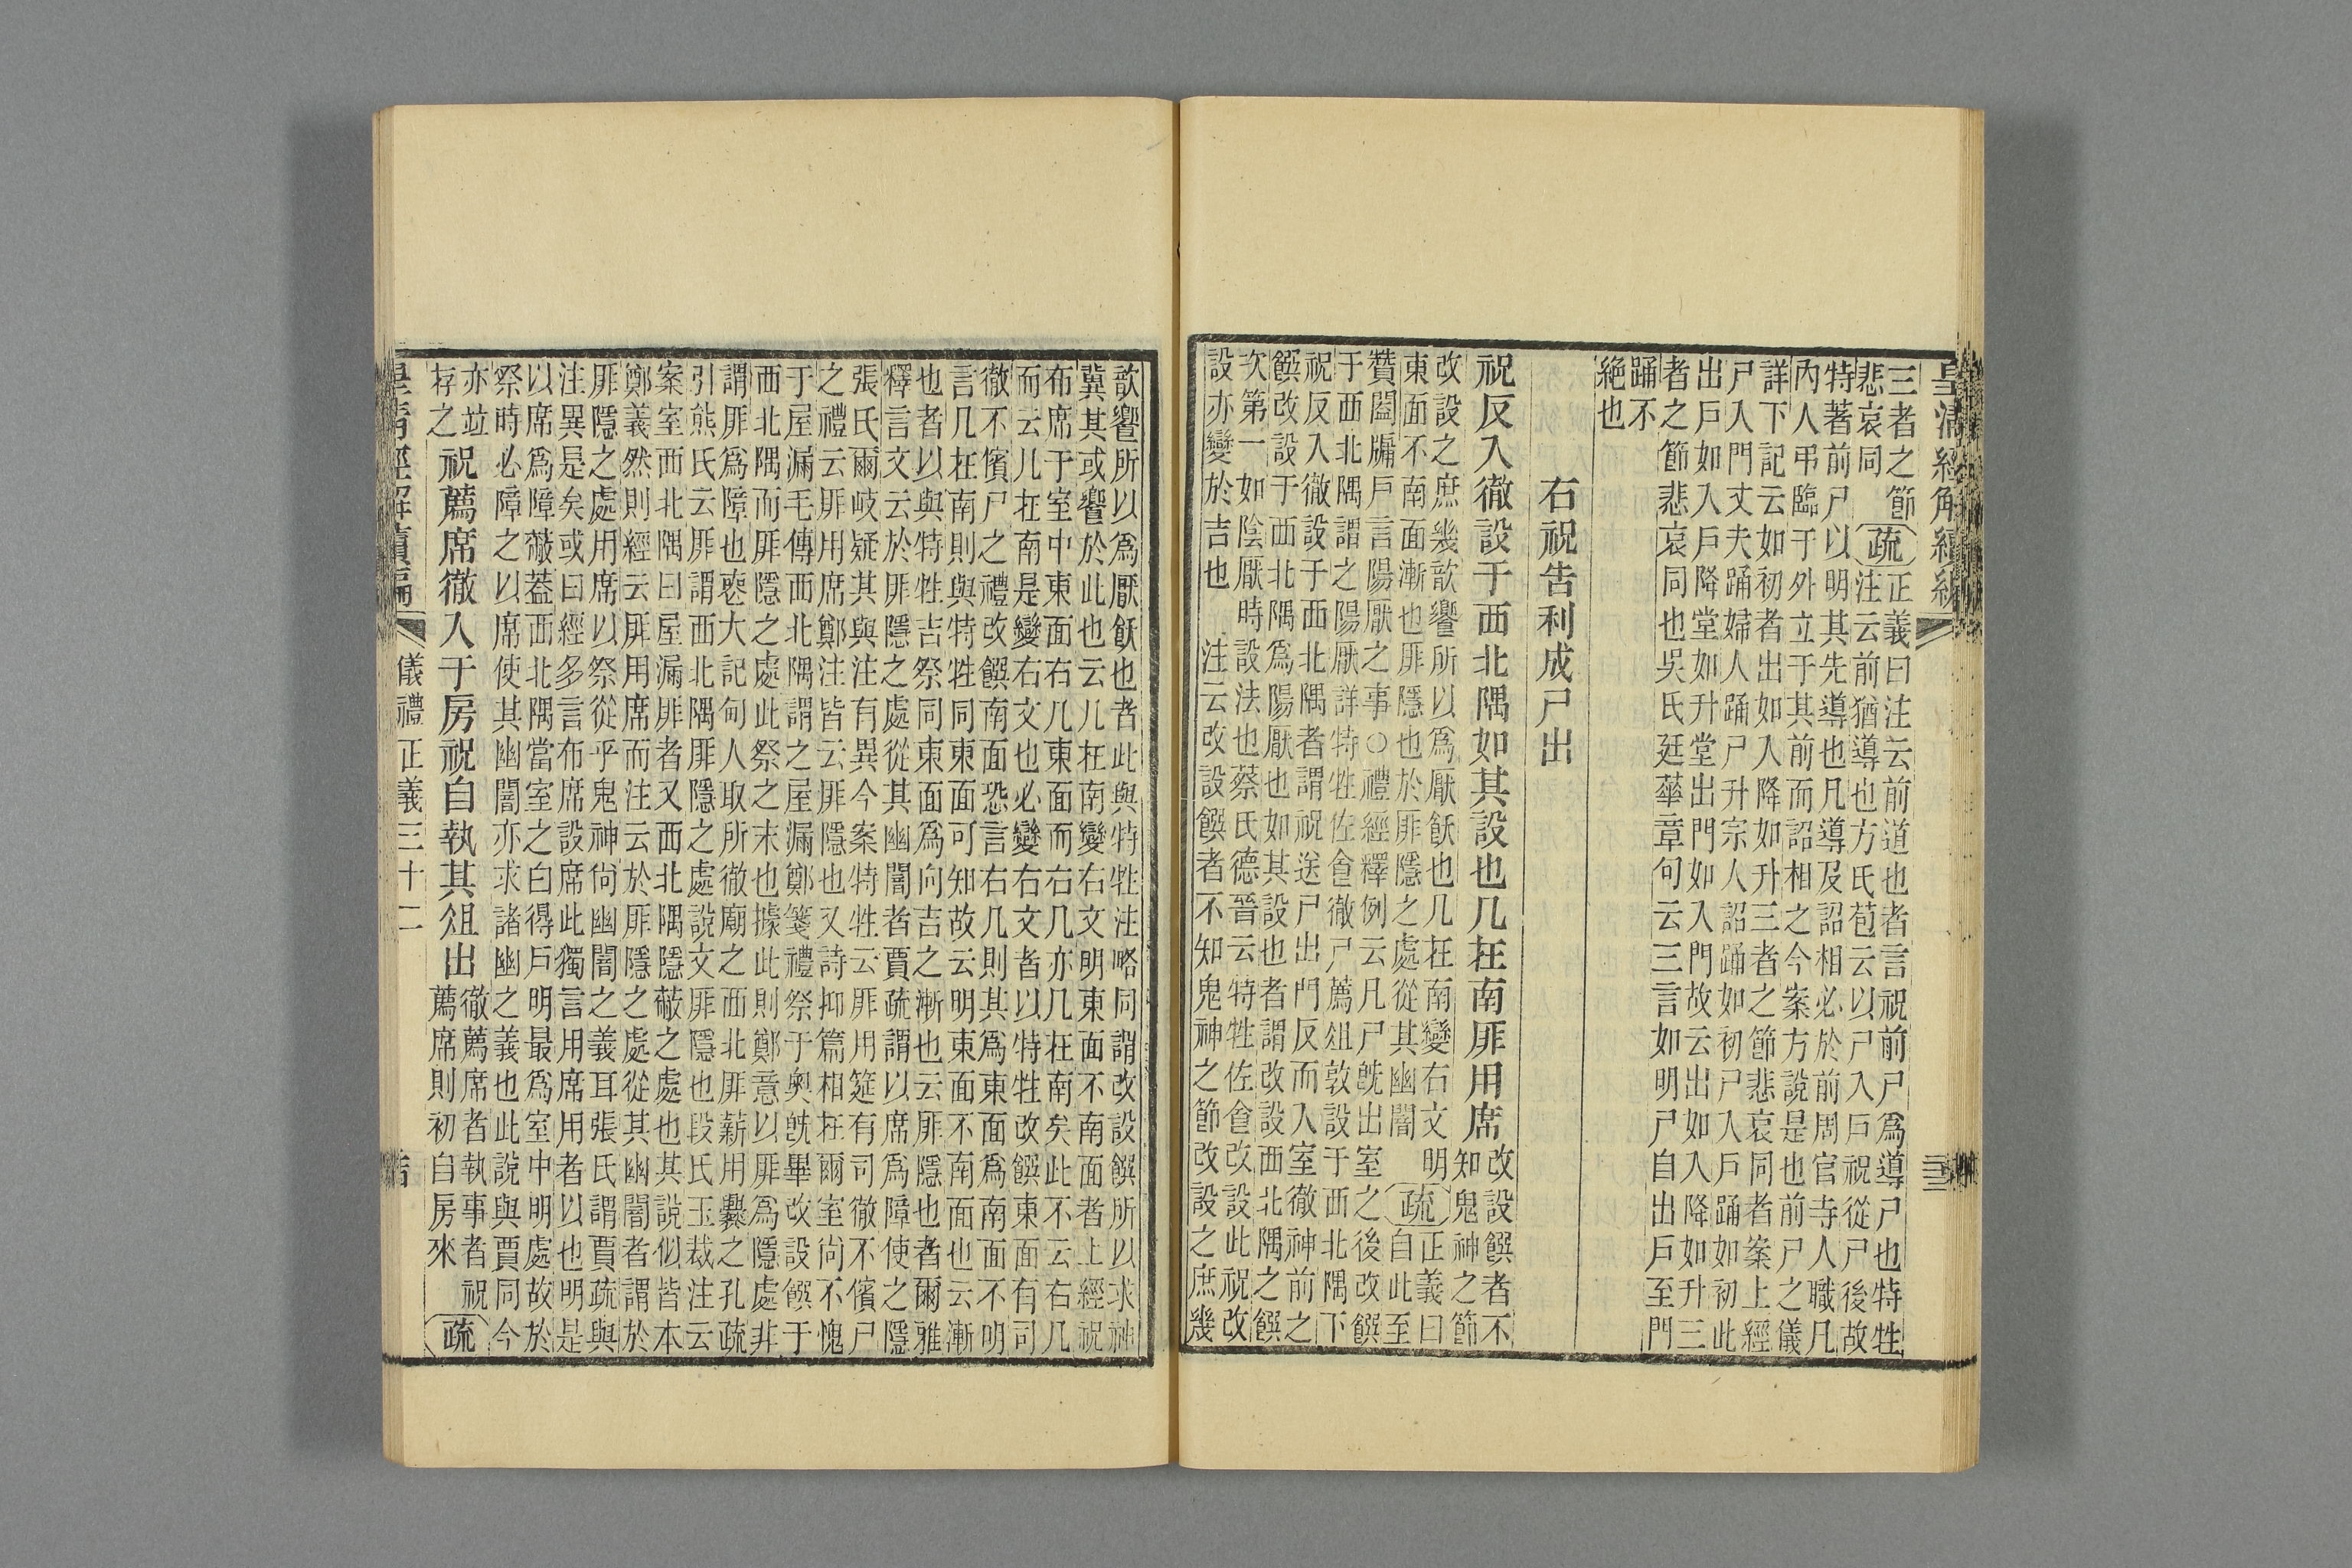 皇清經解續編
三者之節
悲哀同
疏
正義曰注云前道也者言祝前尸爲導尸也特牲
注云前猶導也方氏苞云以尸入戶祝從尸後故
特著前尸以明其先導也凡導及詔相必於前周官寺人職凡
內人弔臨于外立于其前而詔相之今案方說是也前尸之儀
詳下記云如初者出如入降如升三者之節悲哀同者案上經
尸入門丈夫踊婦人踊尸升宗人詔踊如初尸入戶踊如初此
出戶如入戶降堂如升堂出門如入門故云出如入降如升三
者之節悲哀同也吳氏廷華章句云三言如明尸自出戶至門
踊不
絶也
右祝告利成尸出
祝反入徹設于西北隅如其設也几在南厞用席
改設饌者不
知鬼神之節
改設之庶幾歆饗所以爲厭飫也几在南變右文明
東面不南面漸也厞隱也於厞隱之處從其幽闇
疏
正義曰
自此至
贊闔牖戶言陽厭之事○禮經釋例云凡尸旣出室之後改饌
于西北隅謂之陽厭詳特牲佐食徹尸薦俎敦設于西北隅下
祝反入徹設于西北隅者謂祝送尸出門反而入室徹神前之
饌改設于西北隅爲陽厭也如其設也者謂改設西北隅之饌
次第一如陰厭時設法也蔡氏德晉云特牲佐食改設此祝改
設亦變於吉也　注云改設饌者不知鬼神之節改設之庶幾
歆饗所以爲厭飫也者此與特牲注略同謂改設饌所以求神
冀其或饗於此也云几在南變右文明東面不南面者上經祝
布席于室中東面右几東面而右几亦几在南矣此不云右几
而云几在南是變右文也必變右文者以特牲改饌東面有司
徹不儐尸之禮改饌南面恐言右几則其爲東面爲南面不明
言几在南則與特牲同東面可知故云明東面不南面也云漸
也者以與特牲吉祭同東面爲向吉之漸也云厞隱也者爾雅
釋言文云於厞隱之處從其幽闇者賈疏謂以席爲障使之隱
張氏爾岐疑其與注有異今案特牲云厞用筵有司徹不儐尸
之禮云厞用席鄭注皆云厞隱也又詩抑篇相在爾室尚不愧
于屋漏毛傳西北隅謂之屋漏鄭箋禮祭于奧旣畢改設饌于
西北隅而厞隱之處此祭之末也據此則鄭意以厞爲隱處非
謂厞爲障也喪大記甸人取所徹廟之西北厞薪用爨之孔疏
引熊氏云厞謂西北隅厞隱之處說文厞隱也段氏玉裁注云
案室西北隅曰屋漏厞者又西北隅隱蔽之處也其說似皆本
鄭義然則經云厞用席而注云於厞隱之處從其幽闇者謂於
厞隱之處用席以祭從乎鬼神尚幽闇之義耳張氏謂賈疏與
注異是矣或曰經多言布席設席此獨言用席用者以也明是
以席爲障蔽蓋西北隅當室之白得戶明最爲室中明處故於
祭時必障之以席使其幽闇亦求諸幽之義也此說與賈同今
亦竝
存之
祝薦席徹入于房祝自執其俎出
徹薦席者執事者祝
薦席則初自房來
疏
皇清經解續編　儀禮正義三十二